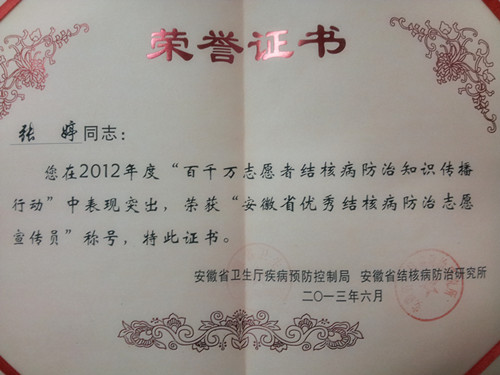 荣誉证书
张婷同志：
您在2012年度“百千万志愿者结核病防治知识传播
行动”中表现突出，荣获“安徽省优秀结核病防治志愿
宣传员”称号，特此证书。
安徽省卫生厅疾病预防控制局 安徽省结核病防治研究所
二〇一三年六月